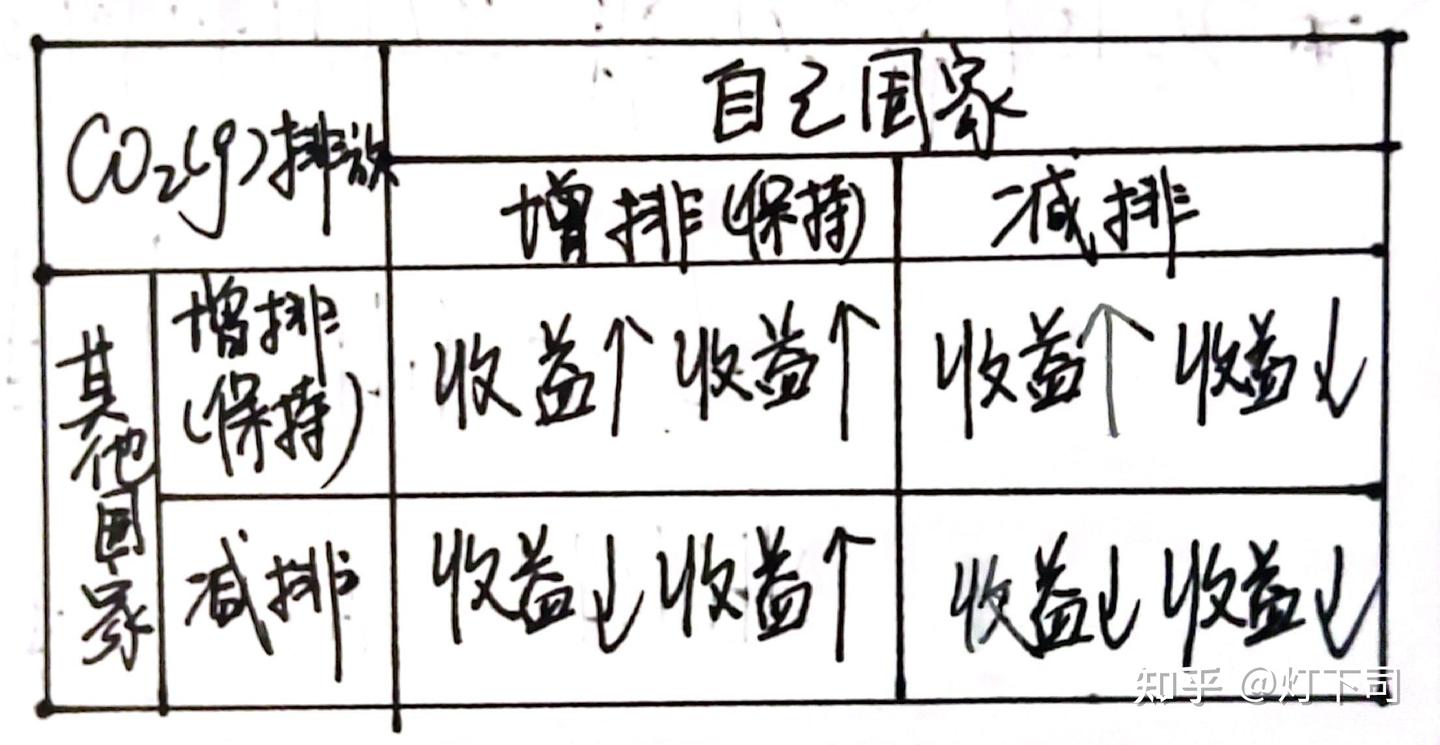 CO₂(g)排放
自己国家
增排(保持)
减排
其他国家
增排
(保持)
收益↑ 收益↑
收益↑ 收益↓
减排
收益↓ 收益↑
收益↓ 收益↓
知乎 @灯下司